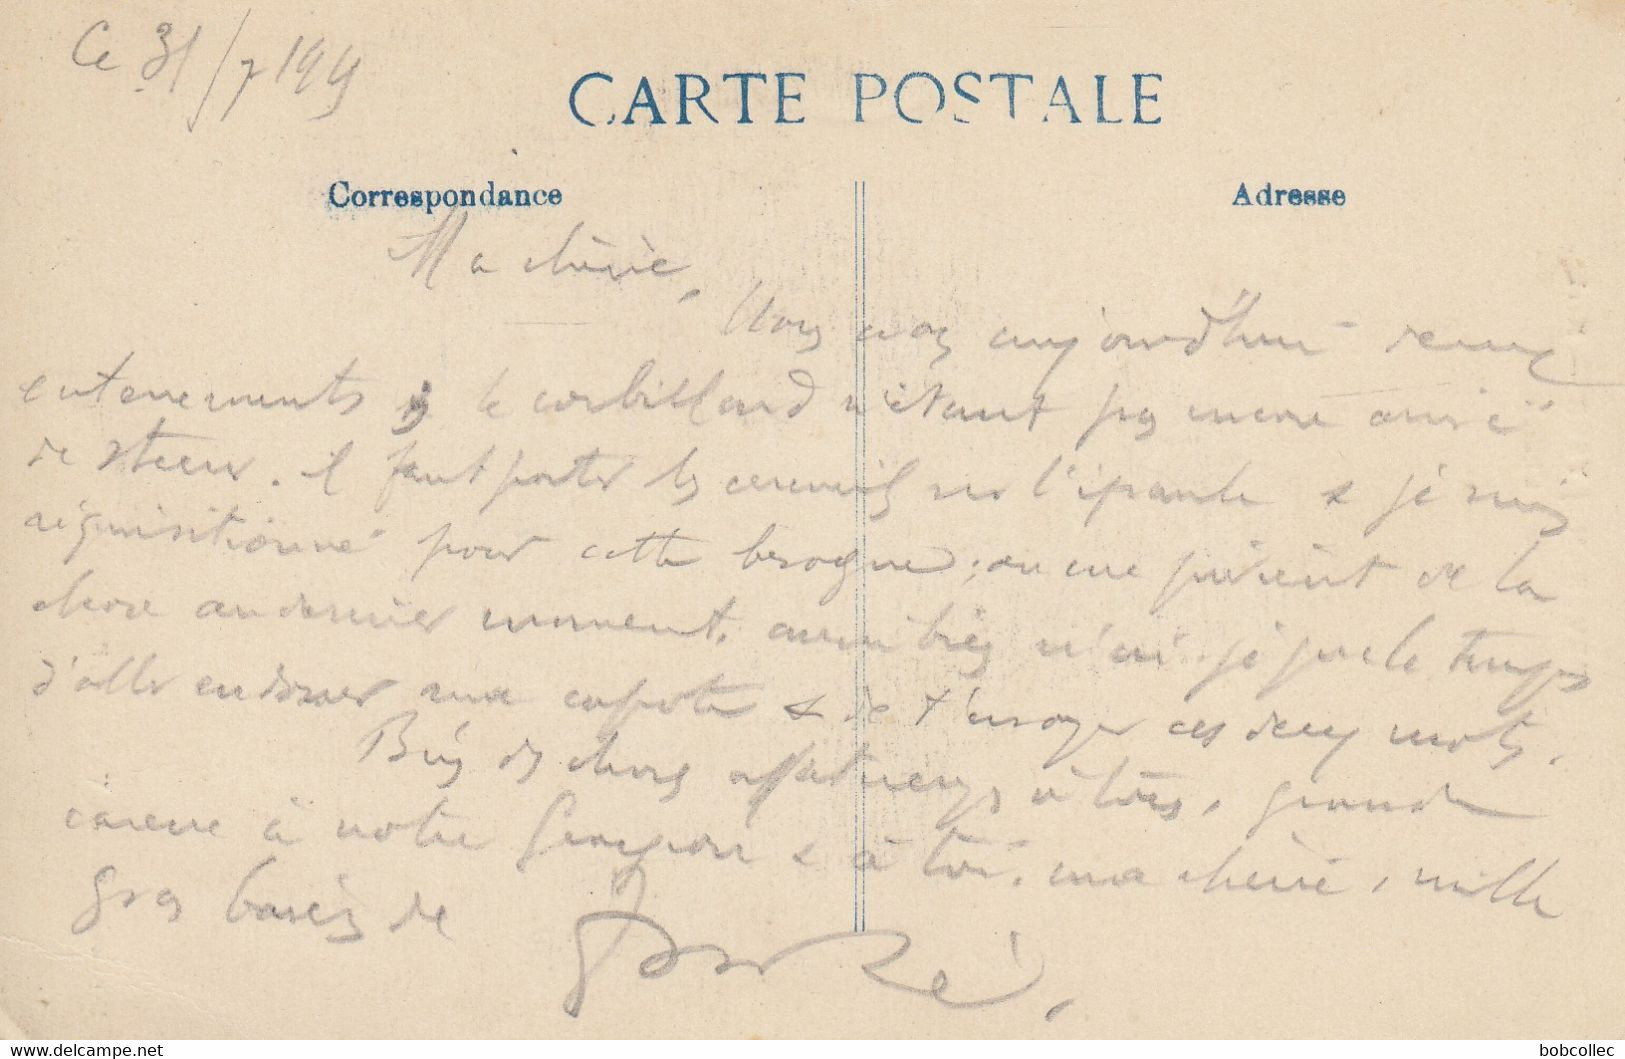 Ce 31/7 19
CARTE POSTALE
Correspondance
Adresse
Ma chérie,
Nous avons aujourd'hui deux
enterrements & le corbillard n'étant pas encore arrivé
de. il faut porter les cercueils sur l'épaule & je suis
réquisitionné pour cette besogne ; on me prévient de la
chose au dernier moment, aussi bien n'ai-je que le temps
d'aller endosser ma capote & de t'envoyer ces deux mots.
Bien des choses affectueuses à tous, grande
caresse à notre & à toi, ma chérie, mille
gros baisers de
www.delcampe.net
bobcollec